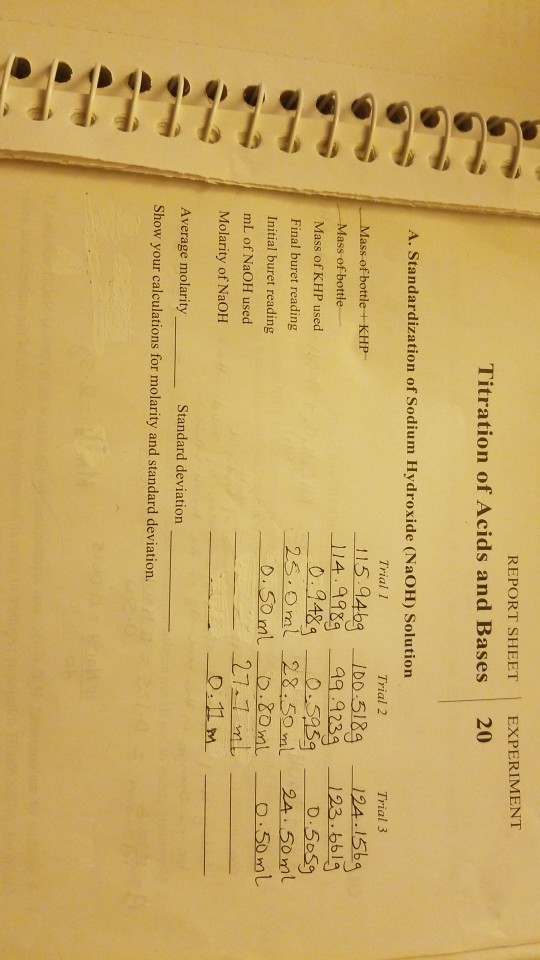 REPORT SHEET | EXPERIMENT
Titration of Acids and Bases 20
A. Standardization of Sodium Hydroxide (NaOH) Solution
Trial 1 Trial 2 Trial 3
Mass of bottle + KHP 115.946g 100.518g 124.156g
Mass of bottle 114.998g 99.923g 123.661g
Mass of KHP used 0.948g 0.595g 0.505g
Final buret reading 25.0ml 28.50ml 24.50ml
Initial buret reading 0.50ml 0.80ml 0.50ml
mL of NaOH used 27.7 ml
Molarity of NaOH 0.11 m
Average molarity Standard deviation
Show your calculations for molarity and standard deviation.